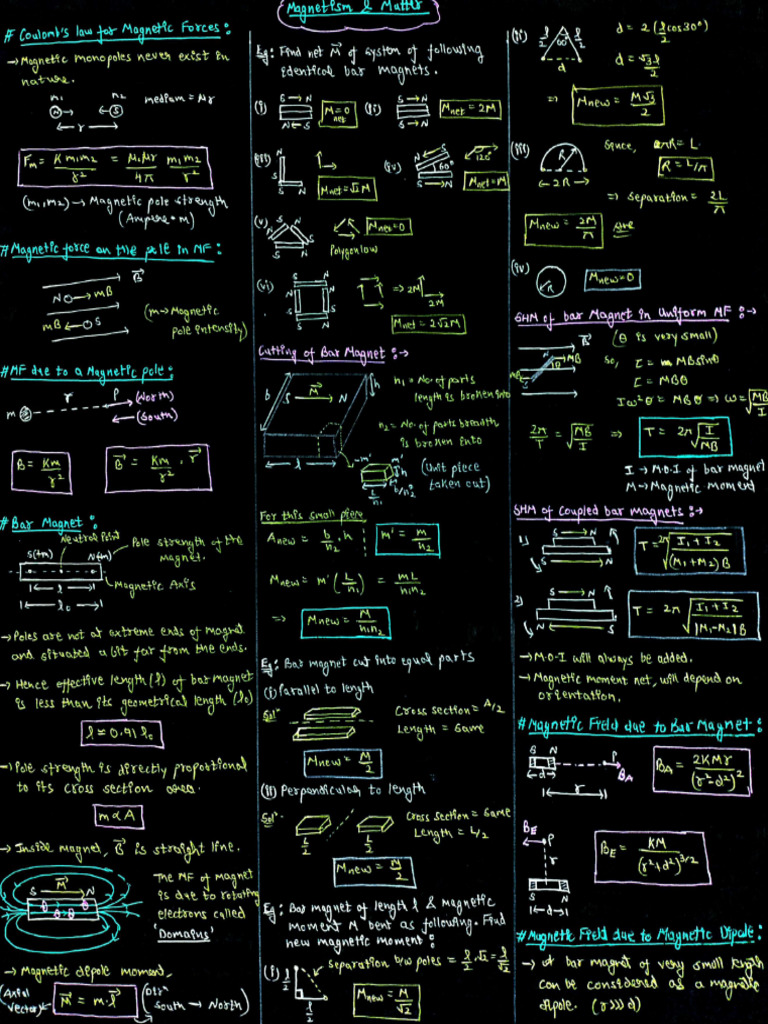 Magnetism & Matter
# Coulomb's law for Magnetic Forces:
→ Magnetic monopoles never exist in
nature.
m₁ m₂ medium = μr
N → ← S
← r →
Fm = K m₁m₂ / r² = μ₀μr / 4π m₁m₂ / r²
(m₁, m₂) → Magnetic pole strength
(Ampere • m)
# Magnetic force on the pole in MF:
B⃗
N → mB
mB ← S
(m → Magnetic
pole intensity)
# MF due to a Magnetic pole:
m r P → (North)
← (South)
B = Km / r²
B⃗ = Km / r² . r⃗
# Bar Magnet:
Neutral Point
S(-m) N(+m)
→ Pole strength of the
magnet.
→ Magnetic Axis
l
l₀
→ Poles are not at extreme ends of magnet
and situated a bit far from the ends.
→ Hence effective length (l) of bar magnet
is less than its geometrical length (l₀)
l ≈ 0.91 l₀
→ Pole strength is directly proportional
to its cross section area.
m ∝ A
→ Inside magnet, B⃗ is straight line.
S M⃗ N
The MF of magnet
is due to rotating
electrons called
'Domains'
→ Magnetic dipole moment,
(Axial
vector)
M⃗ = m.l⃗
(Dirⁿ
South → North)
Eg: Find net M⃗ of system of following
identical bar magnets.
(i) S → N
N ← S
Mnet = 0
(ii) S → N
S → N
Mnet = 2M
(iii) S N
Mnet = √2M
(iv) S N 60° S → N 120°
Mnet = M
(v) N S N S
Mnet = 0
Polygon law
(vi) S N N S N S S N
⇒ 2M
2M
Mnet = 2√2M
Cutting of Bar Magnet: →
b S M⃗ N h l
n₁ = No. of parts
length is broken into
n₂ = No. of parts breadth
is broken into
-m' m' h
L/n₁ b/n₂
(Unit piece
taken out)
For this small piece
Anew = b/n₂ . h
m' = m/n₂
Mnew = m' (L/n₁) = mL / n₁n₂
⇒ Mnew = M / n₁n₂
Eg: Bar magnet cut into equal parts
(i) Parallel to length
Solⁿ
Cross section = A/2
Length = Same
Mnew = M/2
(ii) Perpendicular to length
Solⁿ
L/2 L/2
Cross section = Same
Length = L/2
Mnew = M/2
Eg: Bar magnet of length l & magnetic
moment M bent as following. Find
new magnetic moment:
(i) l/2
l/2
→ separation b/w poles = l/2 √2 = l/√2
Mnew = M/√2
(ii) l/2 60° l/2
d
d = 2 (l/2 cos30°)
d = √3l / 2
⇒ Mnew = M√3 / 2
(iii) R
← 2R →
Since, πR = L
R = L/π
⇒ Separation = 2L/π
Mnew = 2M/π Ans
(iv) R
Mnew = 0
SHM of bar Magnet in Uniform MF: →
B⃗ (θ is very small)
N θ MB
MB S
So, τ = MBsinθ
τ = MBθ
Iω²θ = MBθ ⇒ ω = √MB/I
2π/T = √MB/I ⇒ T = 2π√I/MB
I → M.O.I of bar magnet
M → Magnetic moment
SHM of Coupled bar Magnets: →
1) S → N
S N
T = 2π√I₁ + I₂ / (M₁ + M₂)B
2) S → N
N ← S
T = 2π√I₁ + I₂ / |M₁ - M₂|B
→ M.O.I will always be added.
→ Magnetic moment net, will depend on
orientation.
# Magnetic Field due to Bar Magnet:
S N P
← d → BA
r
BA = 2KMr / (r² - d²)²
BE P
r
S N
← d →
BE = KM / (r² + d²)^3/2
# Magnetic Field due to Magnetic Dipole:
→ A bar magnet of very small length
can be considered as a magnetic
dipole. (r >>> d)